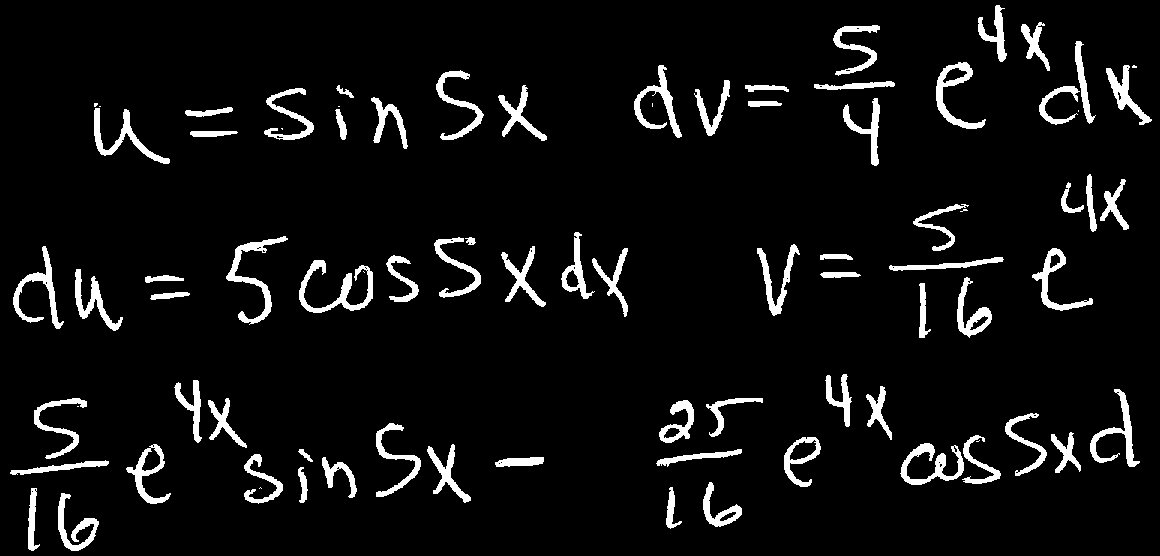 u = sin 5x dv = 5/4 e^{4x} dx
du = 5 cos 5x dx v = 5/16 e^{4x}
5/16 e^{4x} sin 5x - 25/16 e^{4x} cos 5x d